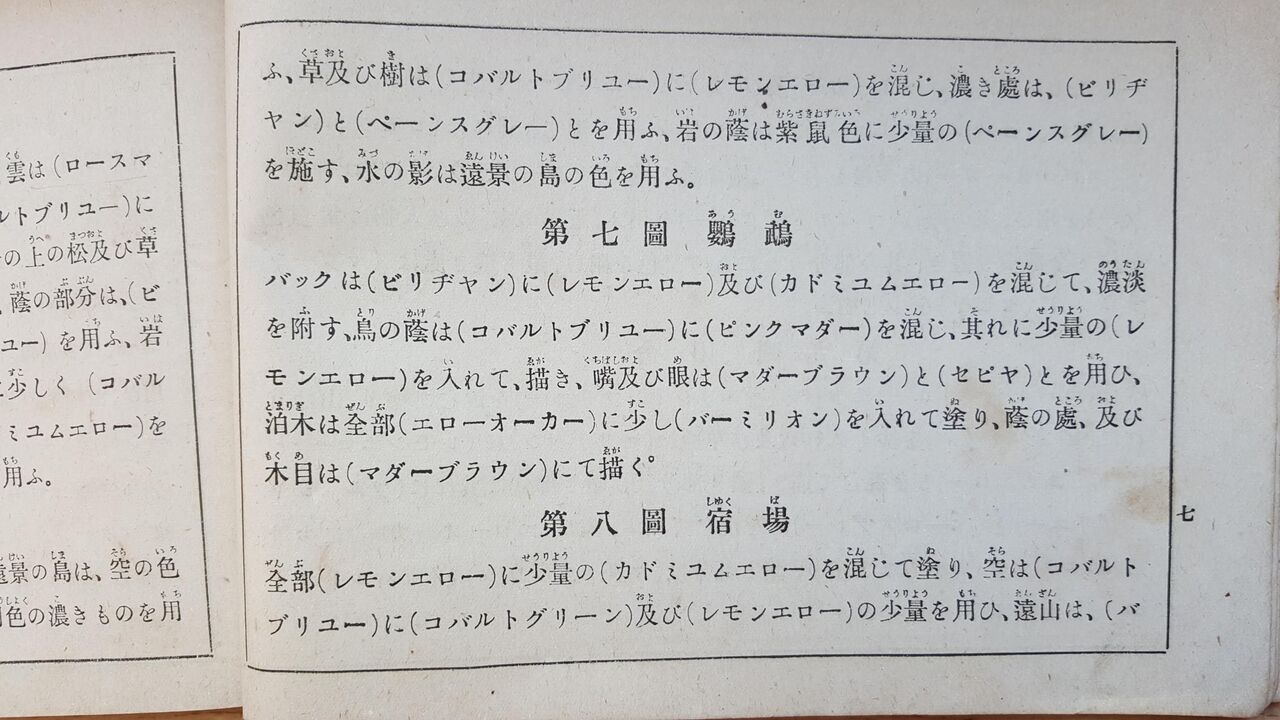 雲は(ロースマ
ルトブリユー)に
の上の松及び草
蔭の部分は、(ビ
ユー)を用ふ、岩
少しく (コバル
ミユムエロー)を
用ふ。
遠景の島は、空の色
色の濃きものを用
ふ、草及び樹は(コバルトブリユー)に(レモンエロー)を混じ、濃き處は、(ビリヂ
ヤン)と(ペーンスグレー)とを用ふ、岩の蔭は紫鼠色に少量の(ペーンスグレー)
を施す、水の影は遠景の島の色を用ふ。
第七圖 鸚鵡
バックは(ビリヂヤン)に(レモンエロー)及び(カドミユムエロー)を混じて、濃淡
を附す、鳥の蔭は(コバルトブリユー)に(ピンクマダー)を混じ、其れに少量の(レ
モンエロー)を入れて、描き、嘴及び眼は(マダーブラウン)と(セピヤ)とを用ひ、
泊木は全部(エローオーカー)に少し(バーミリオン)を入れて塗り、蔭の處、及び
木目は(マダーブラウン)にて描く。
第八圖 宿場
全部(レモンエロー)に少量の(カドミユムエロー)を混じて塗り、空は(コバルト
ブリユー)に(コバルトグリーン)及び(レモンエロー)の少量を用ひ、遠山は、(バ
七